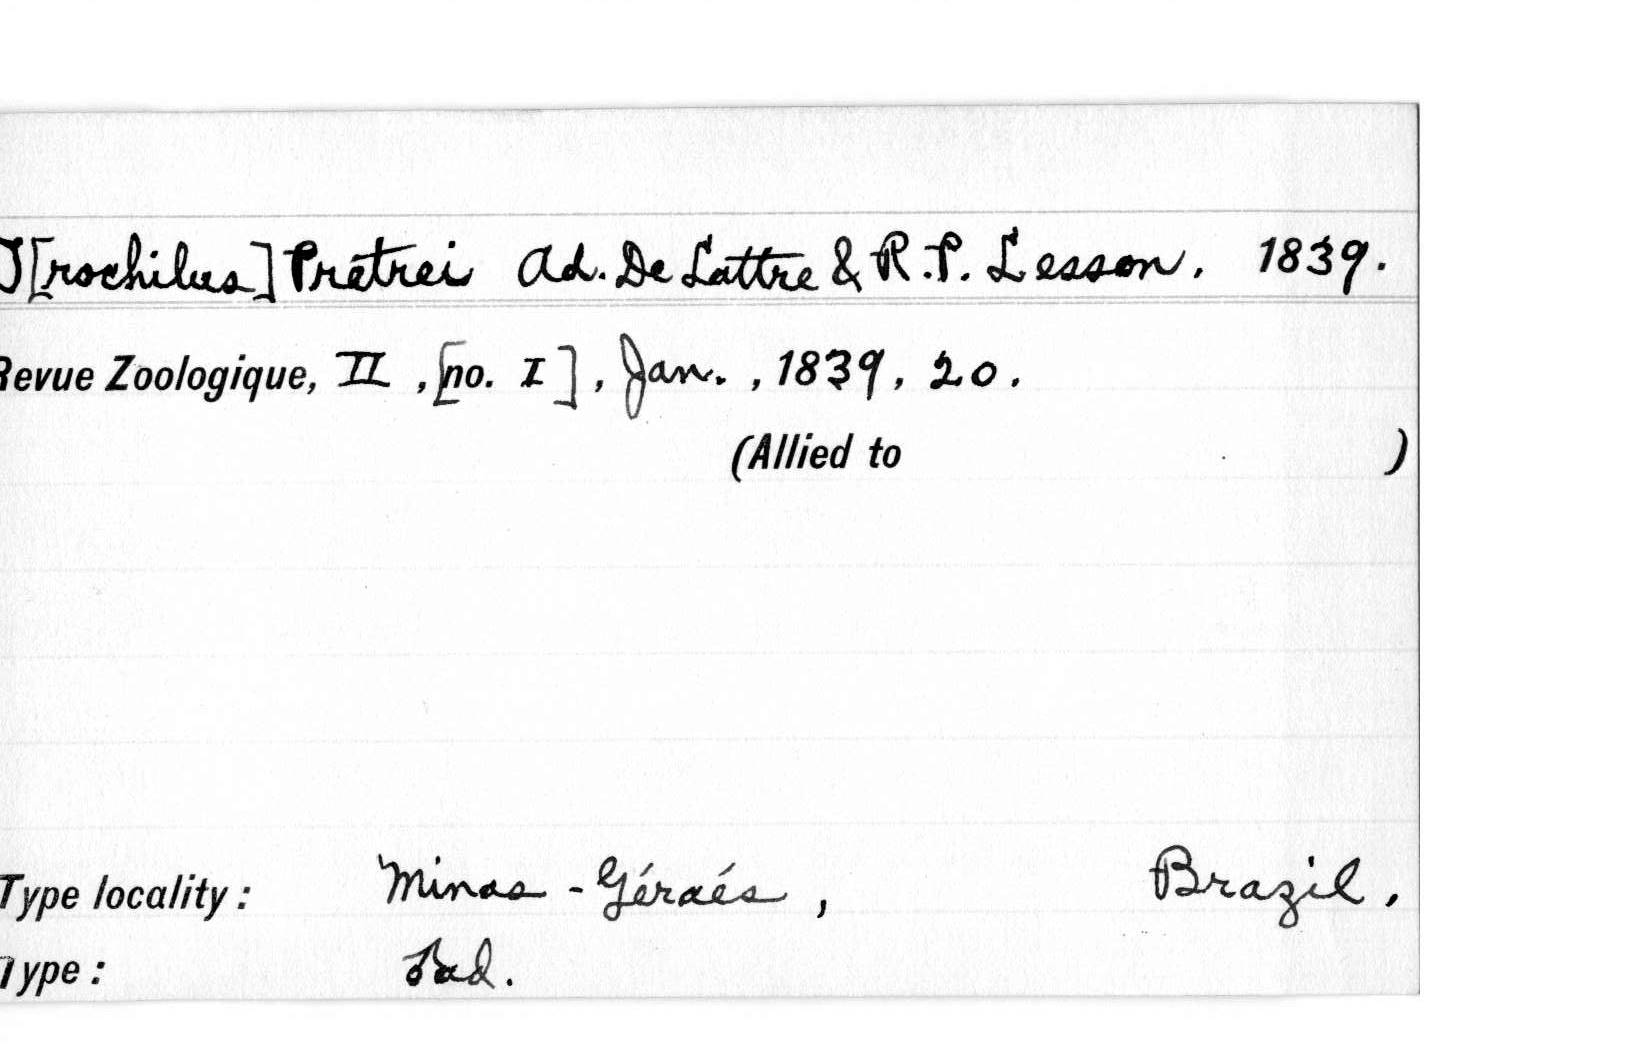 T[rochilus] Pretrei Ad. De Lattre & R.P. Lesson, 1839.
Revue Zoologique, II, [no. I], Jan., 1839, 20.
(Allied to )
Type locality: Minas-Géraés, Brazil,
Type: ♂ad.